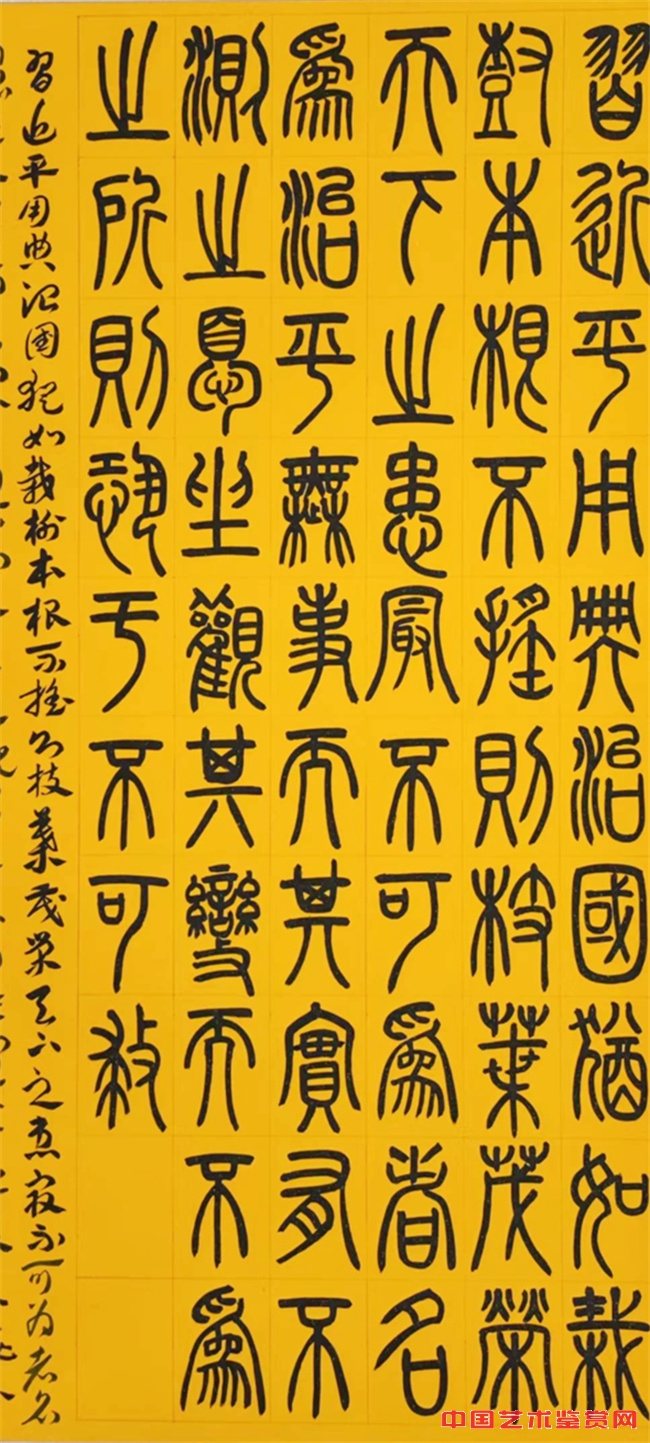 習近平用典治國猶如栽
樹本根不搖則枝葉茂榮
天下之患最不可爲者名
爲治平無事而其實有不
測之憂坐觀其變而不爲
之所則恐于不可救
習近平用典治國猶如栽樹本根不搖則枝葉茂榮天下之患最不可为者名
中国艺术鉴赏网